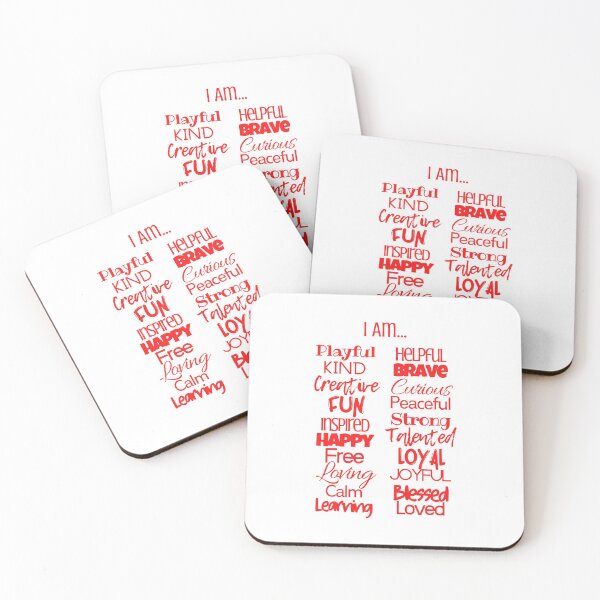 I AM...
Playful
KIND
Creative
FUN
HELPFUL
BRAVE
Curious
Peaceful
I AM...
Playful
KIND
Creative
FUN
INSPIRED
HAPPY
Free
Loving
HELPFUL
BRAVE
Curious
Peaceful
Strong
Talented
LOYAL
I AM...
Playful
KIND
Creative
FUN
INSPIRED
HAPPY
Free
Loving
Calm
Learning
HELPFUL
BRAVE
Curious
Peaceful
Strong
Talented
LOYAL
JOYFUL
I AM...
Playful
KIND
Creative
FUN
INSPIRED
HAPPY
Free
Loving
Calm
Learning
HELPFUL
BRAVE
Curious
Peaceful
Strong
Talented
LOYAL
JOYFUL
Blessed
Loved